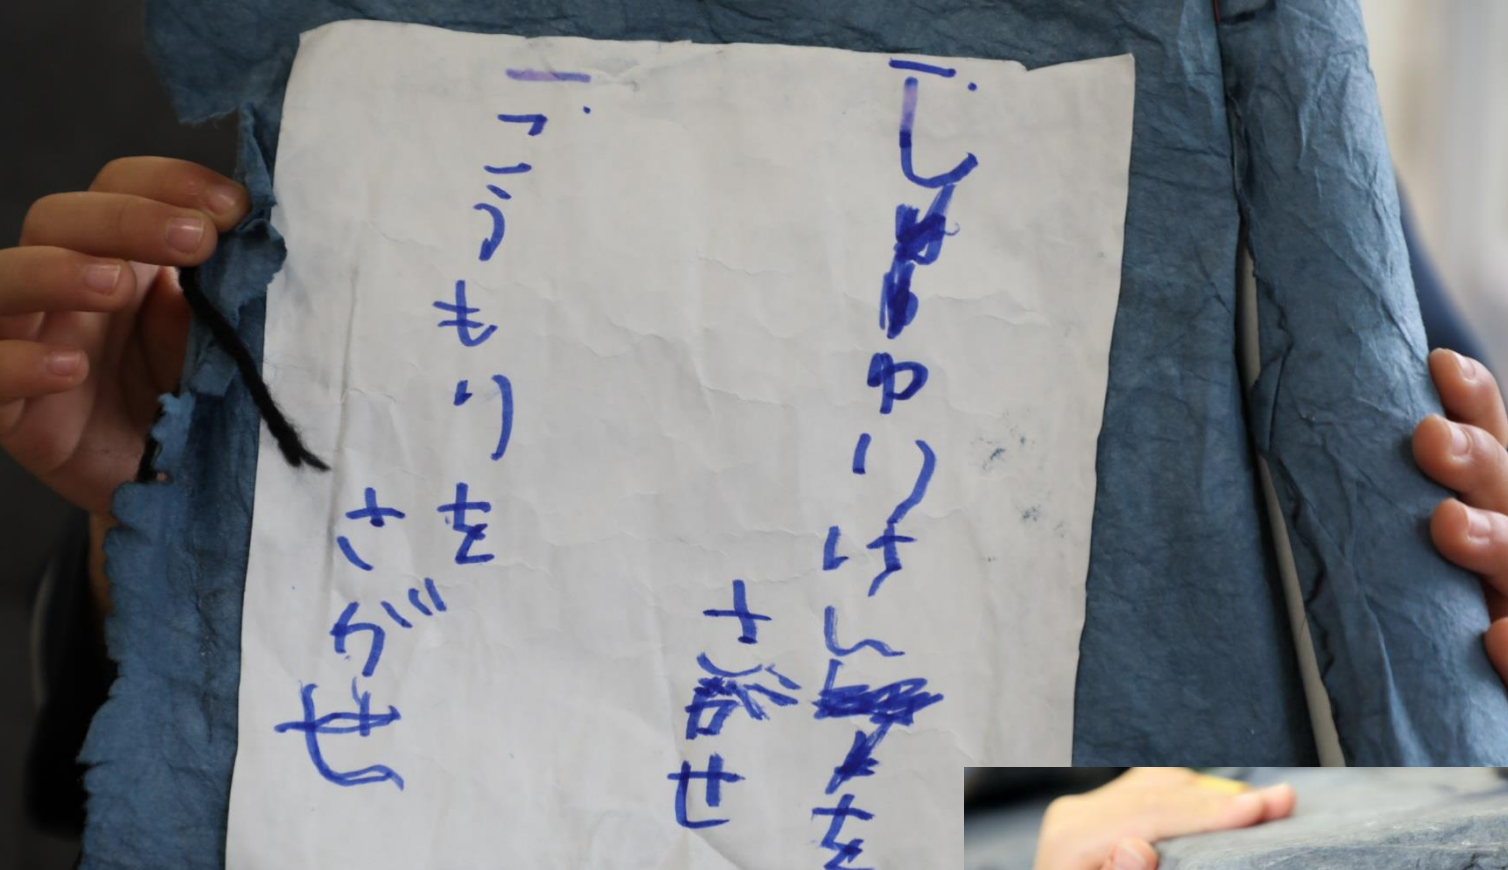 一.しゅりけんを
さがせ
一.こうもりを
さがせ